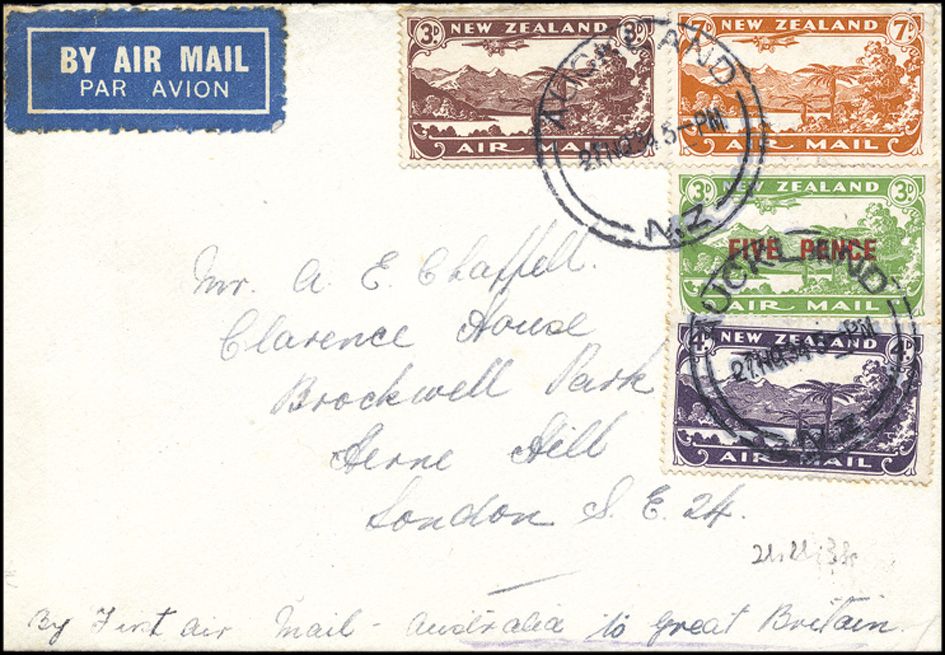 BY AIR MAIL
PAR AVION
3D NEW ZEALAND 3D
AIR MAIL
7D NEW ZEALAND 7D
AIR MAIL
AUCKLAND
27NO34 5-PM
N.Z
3D NEW ZEALAND 3D
FIVE PENCE
AIR MAIL
4D NEW ZEALAND 4D
AIR MAIL
AUCKLAND
27NO34 5-PM
N.Z
Mr. A. E. Chaffell.
Clarence House
Brockwell Park
Herne Hill
London S. E. 24.
By First air Mail - Australia to Great Britain.